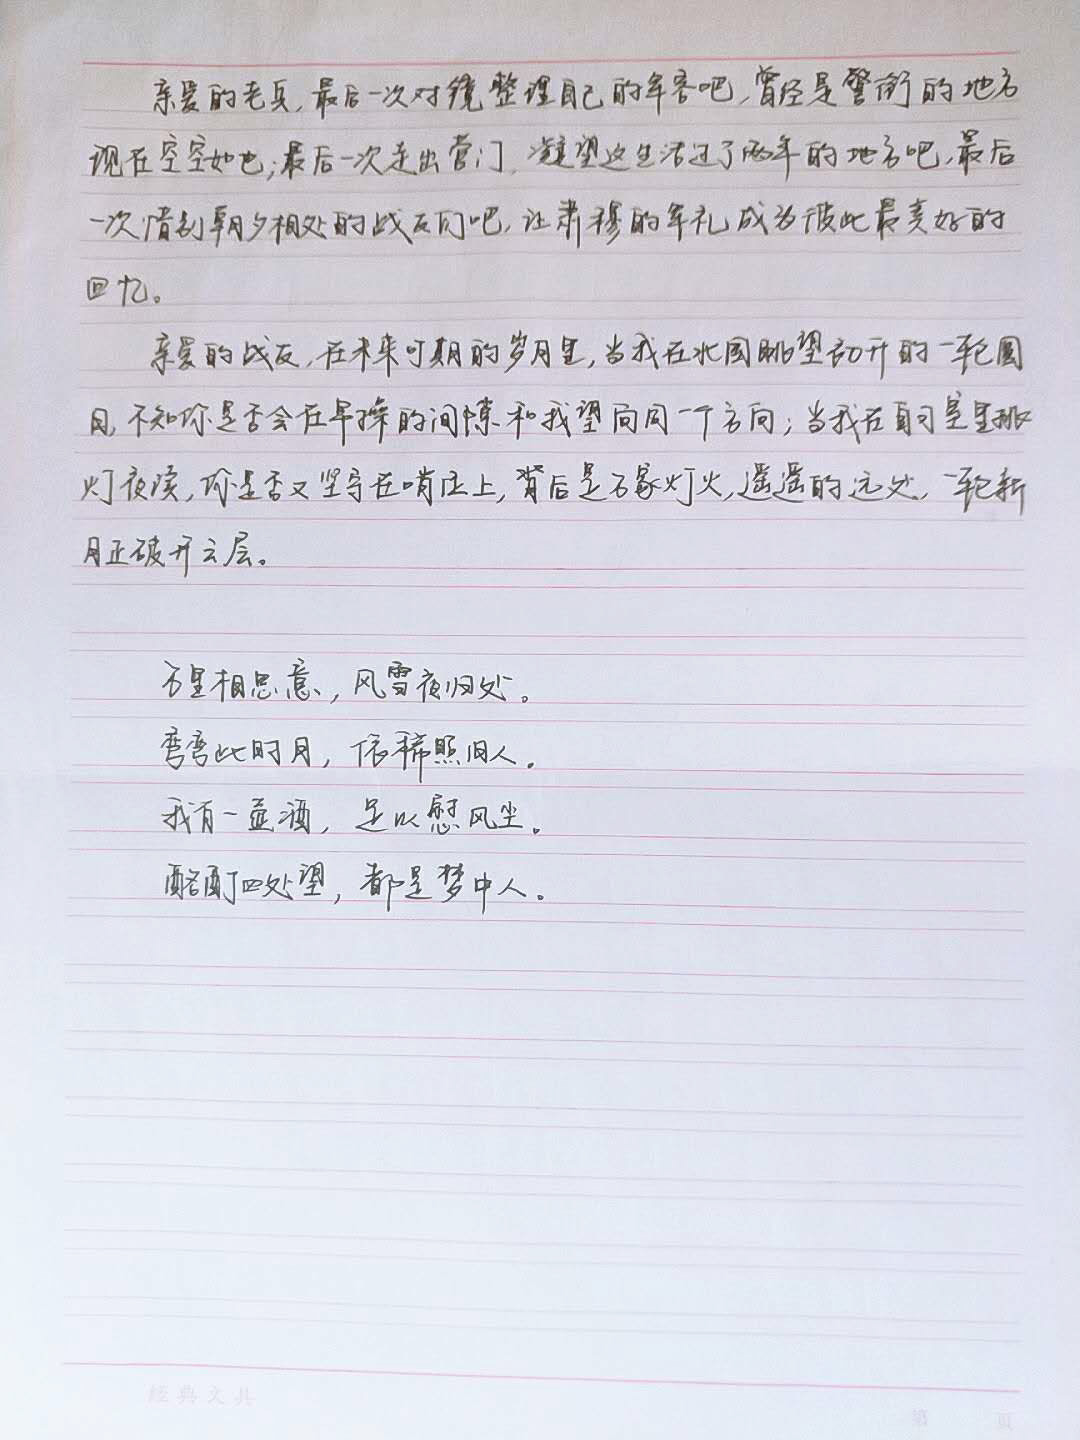 亲爱的老兵，最后一次对镜整理自己的军容吧，曾经是警衔的地方
现在空空如也；最后一次走出营门，凝望这生活过了两年的地方吧，最后
一次惜别朝夕相处的战友们吧，让肃穆的军礼成为彼此最美好的
回忆。
亲爱的战友，在未来可期的岁月里，当我在北国眺望初升的一轮圆
月，不知你是否会在早操的间隙和我望向同一个方向；当我在自习室里挑
灯夜读，你是否又坚守在哨位上，背后是万家灯火，遥遥的远处，一轮新
月正破开云层。
万里相思意，风雪夜归处。
弯弯此时月，依稀照旧人。
我有一壶酒，足以慰风尘。
酩酊四处望，都是梦中人。
经典文具
第 页